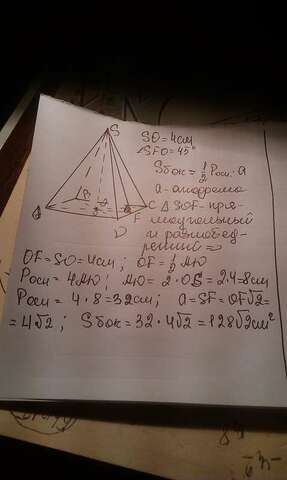 S
SO = 4см
∠SFO = 45°
Sбок = 1/2 Pосн · a
a - апофема
B
A
O
C
F
D
△ SOF - пря-
моугольный
и равнобед-
ренный ⇒
OF = SO = 4см; OF = 1/2 AD
Pосн = 4AD; AD = 2 · OF = 2·4 = 8см
Pосн = 4 · 8 = 32см; a = SF = OF√2 =
= 4√2; Sбок = 32 · 4√2 = 128√2см²